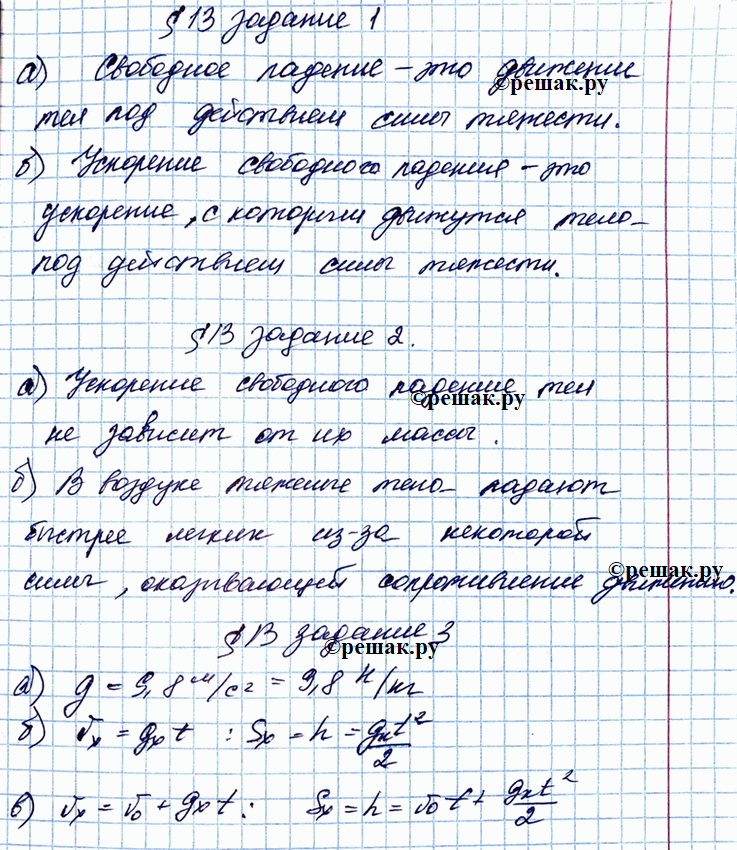 § 13 задание 1
а) Свободное падение – это движение
©решак.ру
тел под действием силы тяжести.
б) Ускорение свободного падения – это
ускорение, с которым движутся тела
под действием силы тяжести.
§ 13 задание 2.
а) Ускорение свободного падение тел
©решак.ру
не зависит от их массы.
б) В воздухе тяжелые тела падают
быстрее легких из-за некоторой
©решак.ру
силы, оказывающей сопротивление движению.
§ 13 задание 3
©решак.ру
а) g = 9,8 м/с² = 9,8 Н/кг
б) vₓ = gₓt ; Sₓ = h = gₓt²/2
в) vₓ = v₀ + gₓt ; Sₓ = h = v₀t + gₓt²/2